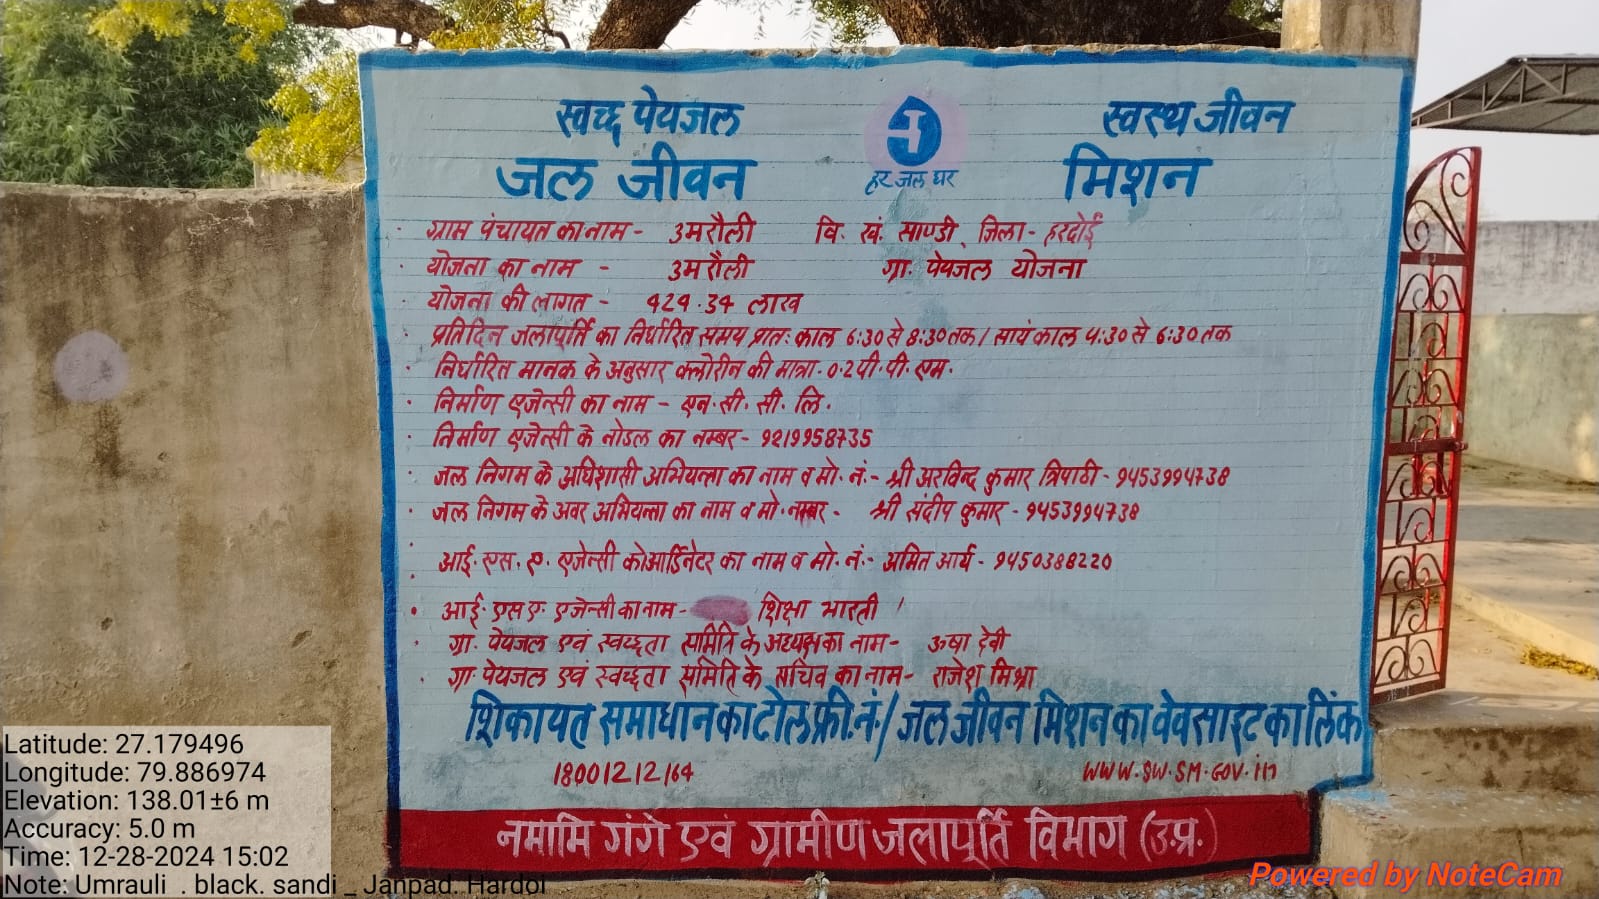 स्वच्छ पेयजल स्वस्थ जीवन
जल जीवन हर जल घर मिशन
ग्राम पंचायत का नाम - उमरौली वि. खं. साण्डी, जिला - हरदोई
योजना का नाम - उमरौली ग्रा. पेयजल योजना
योजना की लागत - 424.34 लाख
प्रतिदिन जलापूर्ति का निर्धारित समय प्रातः काल 6:30 से 8:30 तक / सायं काल 4:30 से 6:30 तक
निर्धारित मानक के अनुसार क्लोरीन की मात्रा - 0.2 पी. पी. एम.
निर्माण एजेन्सी का नाम - एन. सी. सी. लि.
निर्माण एजेन्सी के नोडल का नम्बर - 9219958735
जल निगम के अधिशासी अभियन्ता का नाम व मो. नं:- श्री अरविन्द कुमार त्रिपाठी - 9453994738
जल निगम के अवर अभियन्ता का नाम व मो. नम्बर - श्री संदीप कुमार - 9453994738
आई. एस. ए. एजेन्सी कोआर्डिनेटर का नाम व मो. नं:- अमित आर्य - 9450388220
आई. एस ए. एजेन्सी का नाम - शिक्षा भारती
ग्रा. पेयजल एवं स्वच्छता समिति के अध्यक्ष का नाम - ऊषा देवी
ग्रा. पेयजल एवं स्वच्छता समिति के सचिव का नाम - राजेश मिश्रा
शिकायत समाधान का टोल फ्री. नं:/ जल जीवन मिशन का वेवसाइट का लिंक
18001212164 www.sw.sm.gov.in
नमामि गंगे एवं ग्रामीण जलापूर्ति विभाग (उ.प्र.)
Latitude: 27.179496
Longitude: 79.886974
Elevation: 138.01±6 m
Accuracy: 5.0 m
Time: 12-28-2024 15:02
Note: Umrauli . black. sandi _ Janpad. Hardoi
Powered by NoteCam